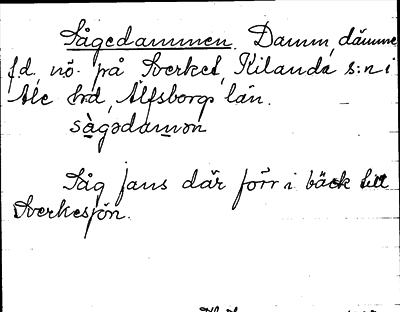 Sågedammen. Damm, dämme
f.d. nö. på Sverket, Kilanda s:n i
Ale hd, Älfsborgs län.
sàgədamən
Såg fans där förr i bäck till
Sverkesjön.